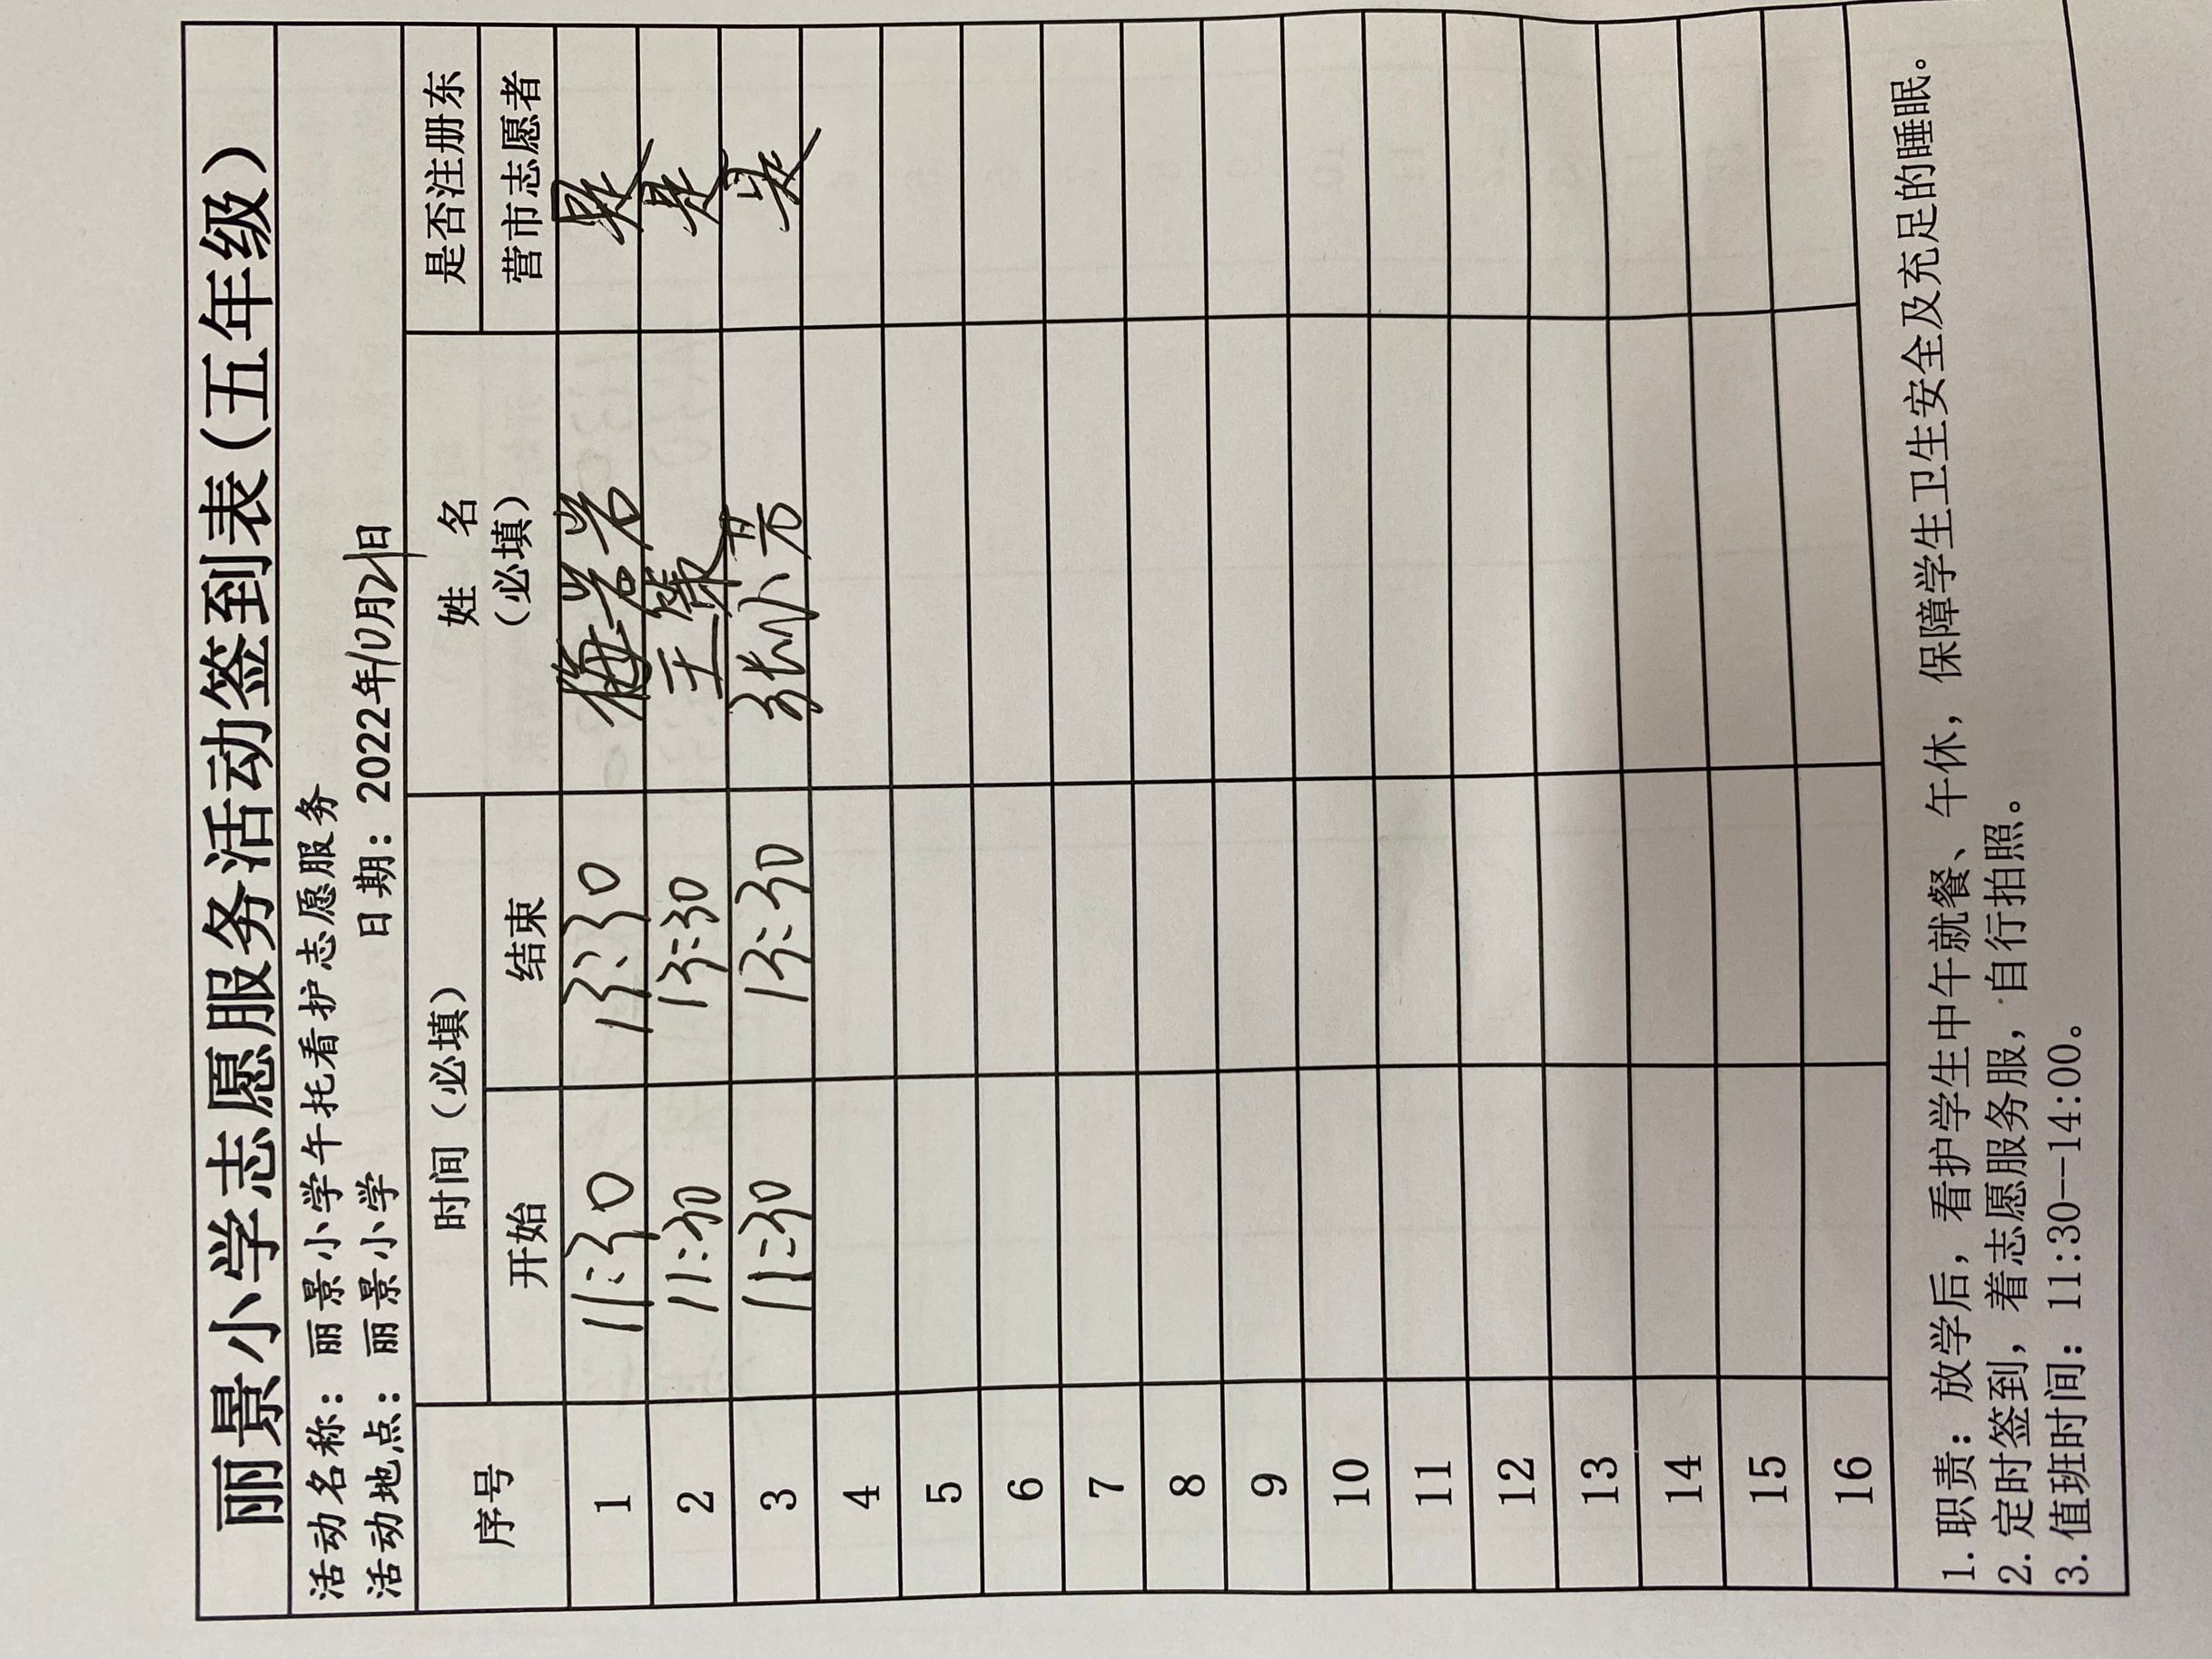 丽景小学志愿服务活动签到表（五年级）
活动名称：丽景小学午托看护志愿服务
活动地点：丽景小学 日期：2022年10月21日
序号 时间（必填） 姓 名（必填） 是否注册东营市志愿者
开始 结束
1 11:30 13:30 梅岩岩 是
2 11:30 13:30 王 是
3 11:30 13:30 张小芳 是
4
5
6
7
8
9
10
11
12
13
14
15
16
1.职责：放学后，看护学生中午就餐、午休，保障学生卫生安全及充足的睡眠。
2.定时签到，着志愿服务服，自行拍照。
3.值班时间：11:30--14:00。